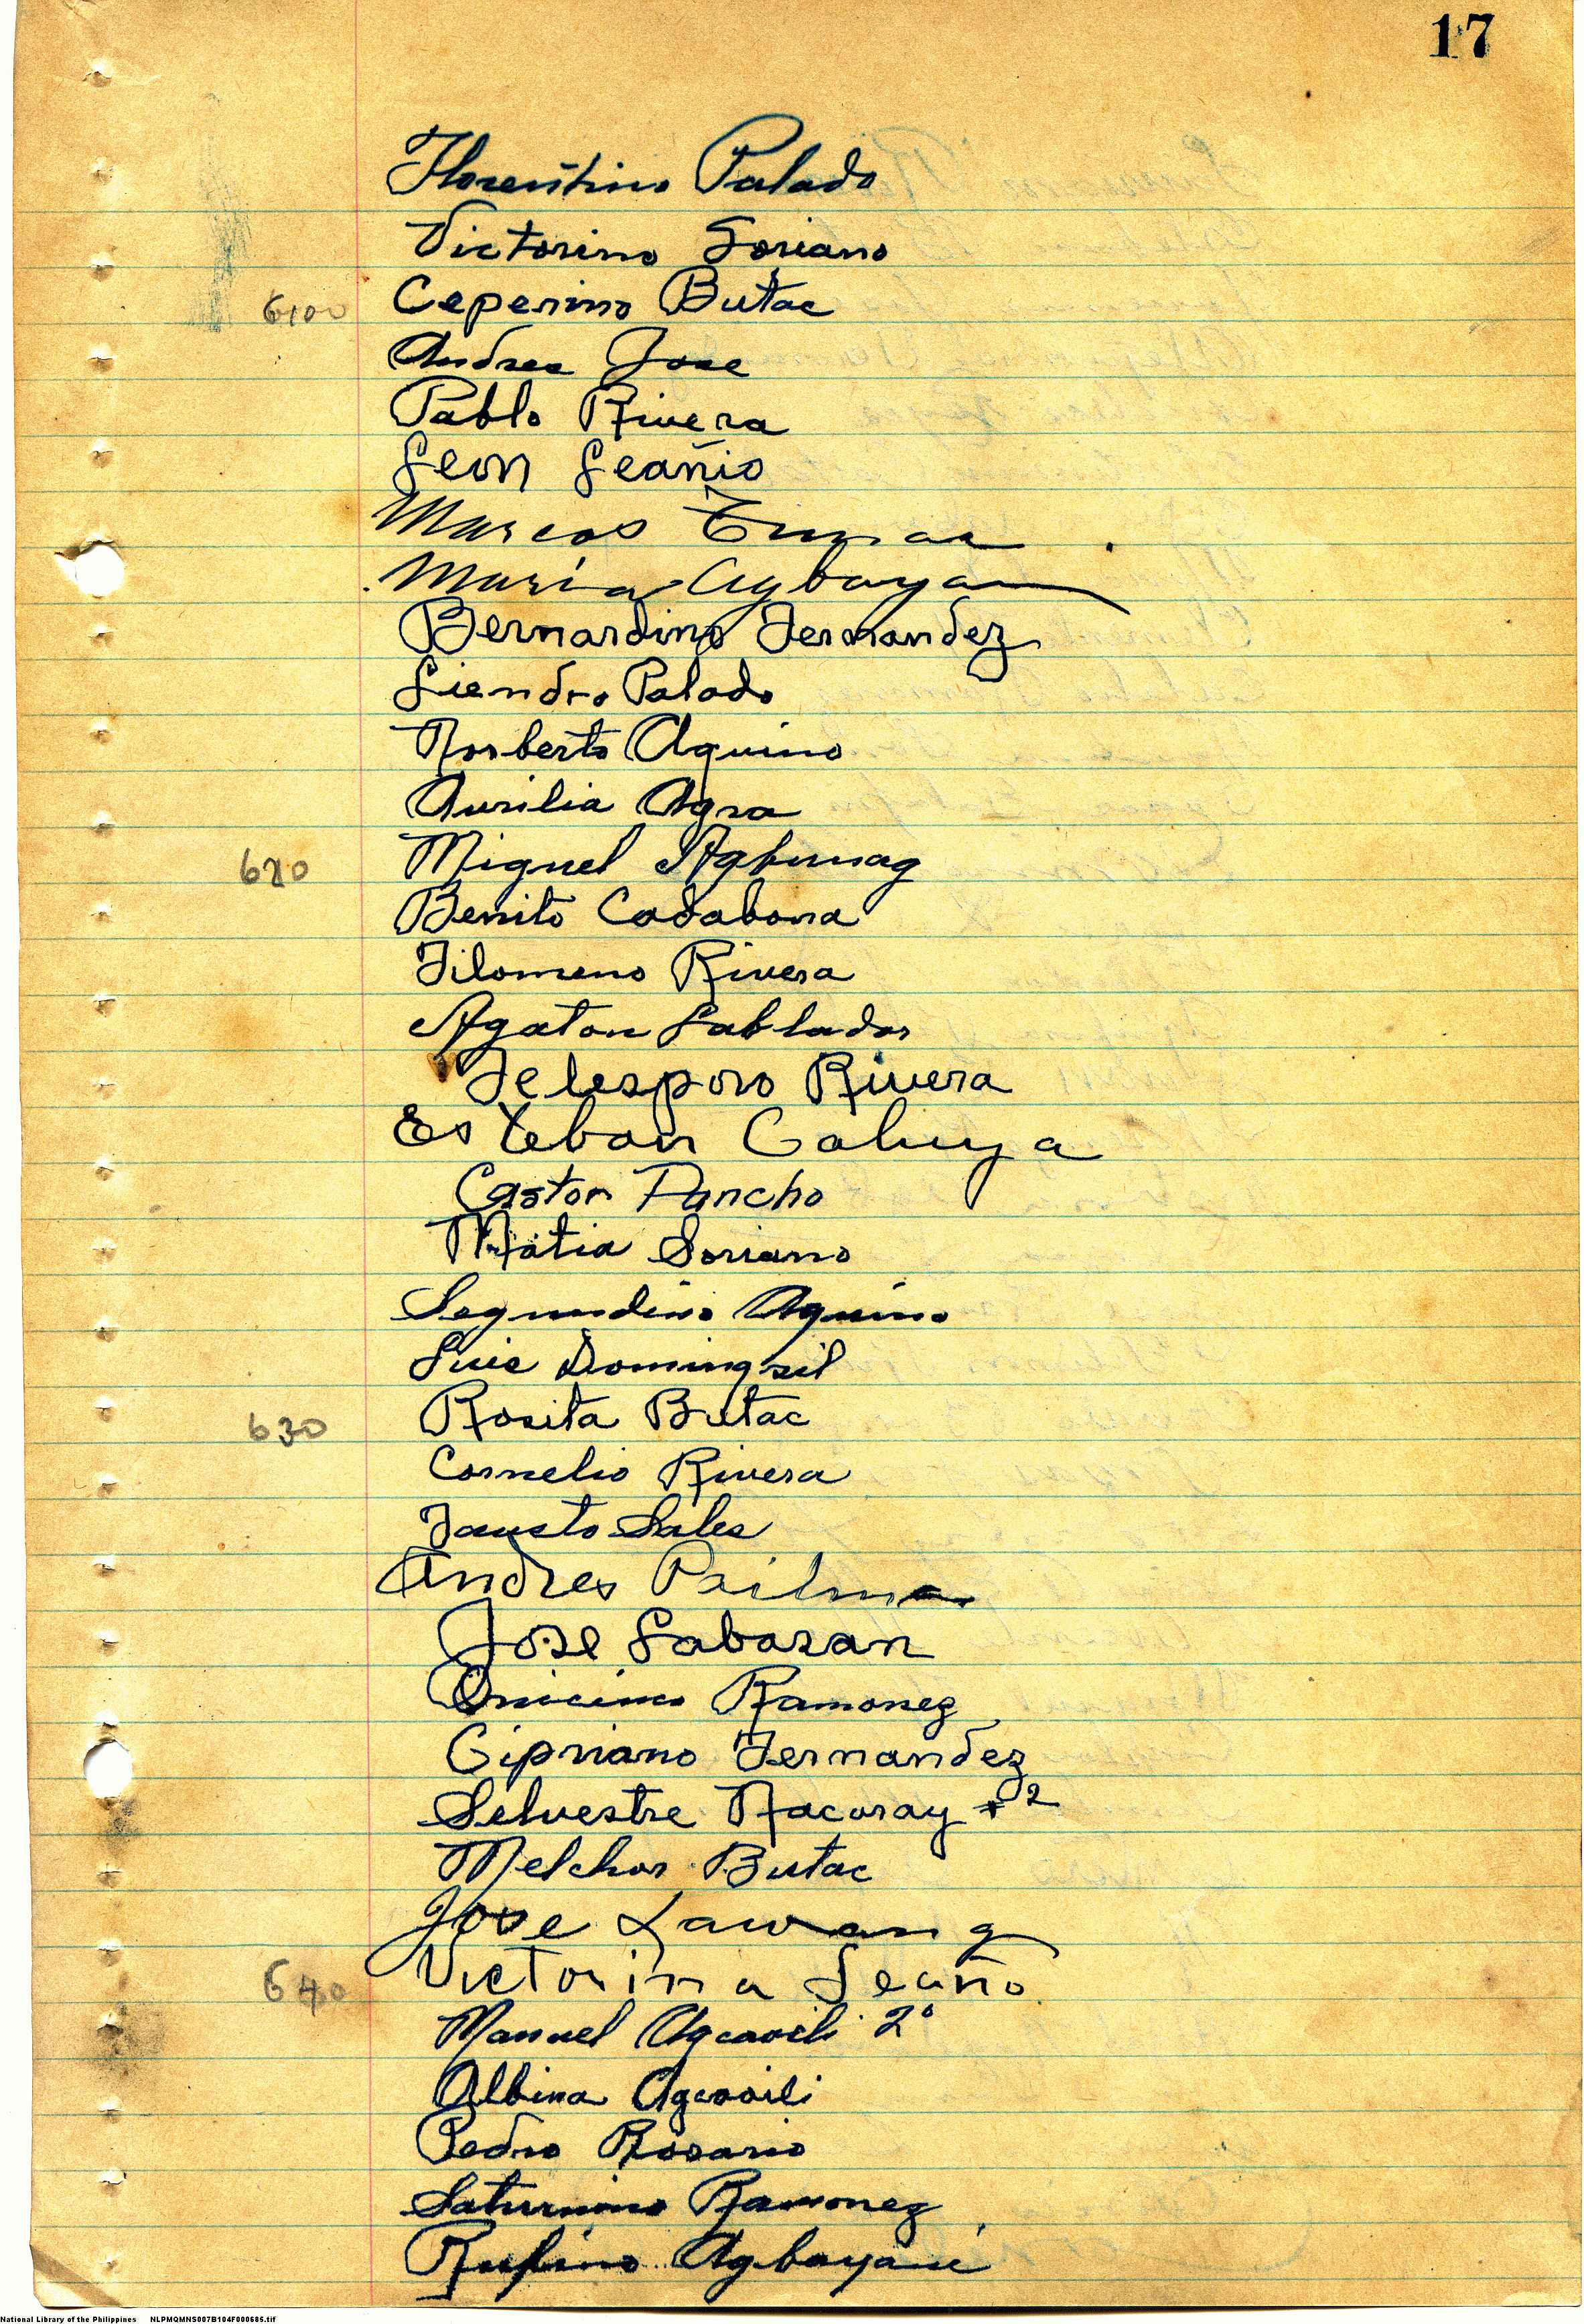 17
Florentino Palado
Victorino Soriano
6100 Ceperino Butac
Andres Jose
Pablo Rivera
Leon Leañio
Marcos
Maria Agbayan
Bernardino Fernandez
Liendro Palado
Norberto Aquino
Aurilia Agra
620 Miguel Agbunag
Benito Cadabona
Filomeno Rivera
Agaton Lablador
Telesporo Rivera
Esteban Galuya
Castor Pancho
Matia Soriano
Segundino Aquino
Luis Domingsil
630 Rosita Butac
Cornelio Rivera
Fausto Sales
Andres Pailma
Jose Labasan
Onicimo Ramonez
Cipriano Fernandez
Selvestre Racuray #2
Melchor Butac
Jose Lawang
640 Victorina Leaño
Manuel Agcaoili 2°
Albina Agcaoili
Pedro Rosario
Saturnino Ramonez
Rufino Agbayani
National Library of the Philippines NLPMQMNS007B104F000685.tif